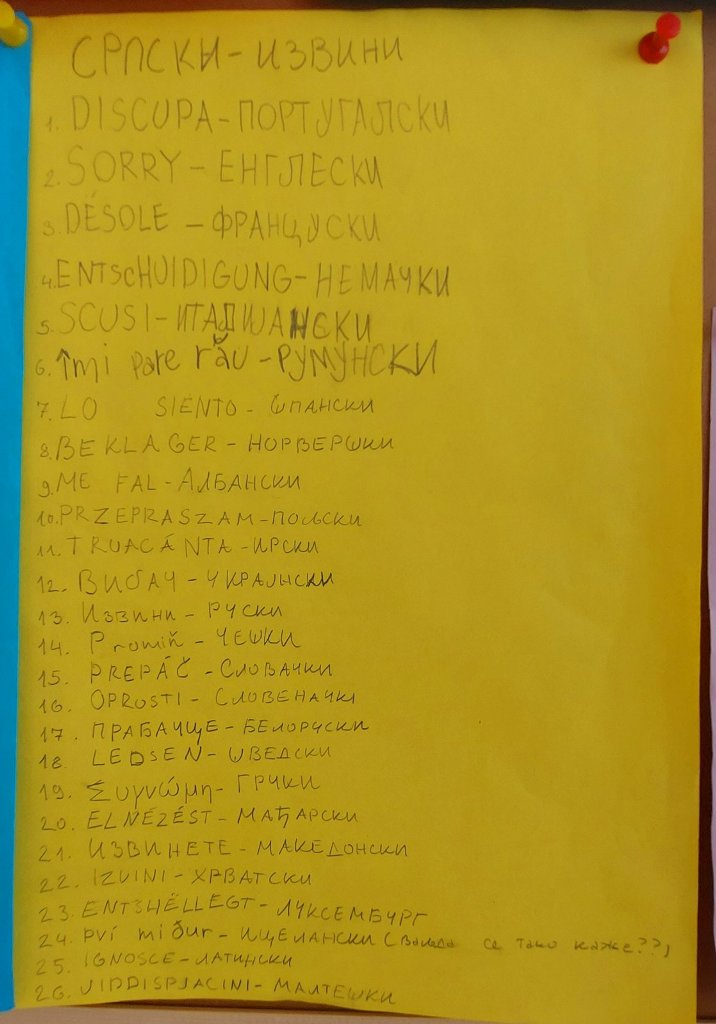 СРПСКИ - ИЗВИНИ
1. DISCUPA - ПОРТУГАЛСКИ
2. SORRY - ЕНГЛЕСКИ
3. DÉSOLE - ФРАНЦУСКИ
4. ENTSCHUIDIGUNG - НЕМАЧКИ
5. SCUSI - ИТАЛИЈАНСКИ
6. îmi pare rău - РУМУНСКИ
7. LO SIENTO - ШПАНСКИ
8. BEKLAGER - НОРВЕШКИ
9. ME FAL - АЛБАНСКИ
10. PRZEPRASZAM - ПОЉСКИ
11. TRUACÁNTA - ИРСКИ
12. ВИБАЧ - УКРАЈИНСКИ
13. Извини - РУСКИ
14. Promiň - ЧЕШКИ
15. PREPÁČ - СЛОВАЧКИ
16. OPROSTI - СЛОВЕНАЧКИ
17. ПРАБАЧЩЕ - БЕЛОРУСКИ
18. LEDSEN - ШВЕДСКИ
19. Συγνώμη - ГРЧКИ
20. ELNÉZÉST - МАЂАРСКИ
21. ИЗВИНЕТЕ - МАКЕДОНСКИ
22. IZVINI - ХРВАТСКИ
23. ENTSHËLLEGT - ЛУКСЕМБУРГ
24. Því miður - ИЦЕЛАНСКИ (Ваљда се тако каже??)
25. IGNOSCE - ЛАТИНСКИ
26. JIDDISPJACINI - МАЛТЕШКИ